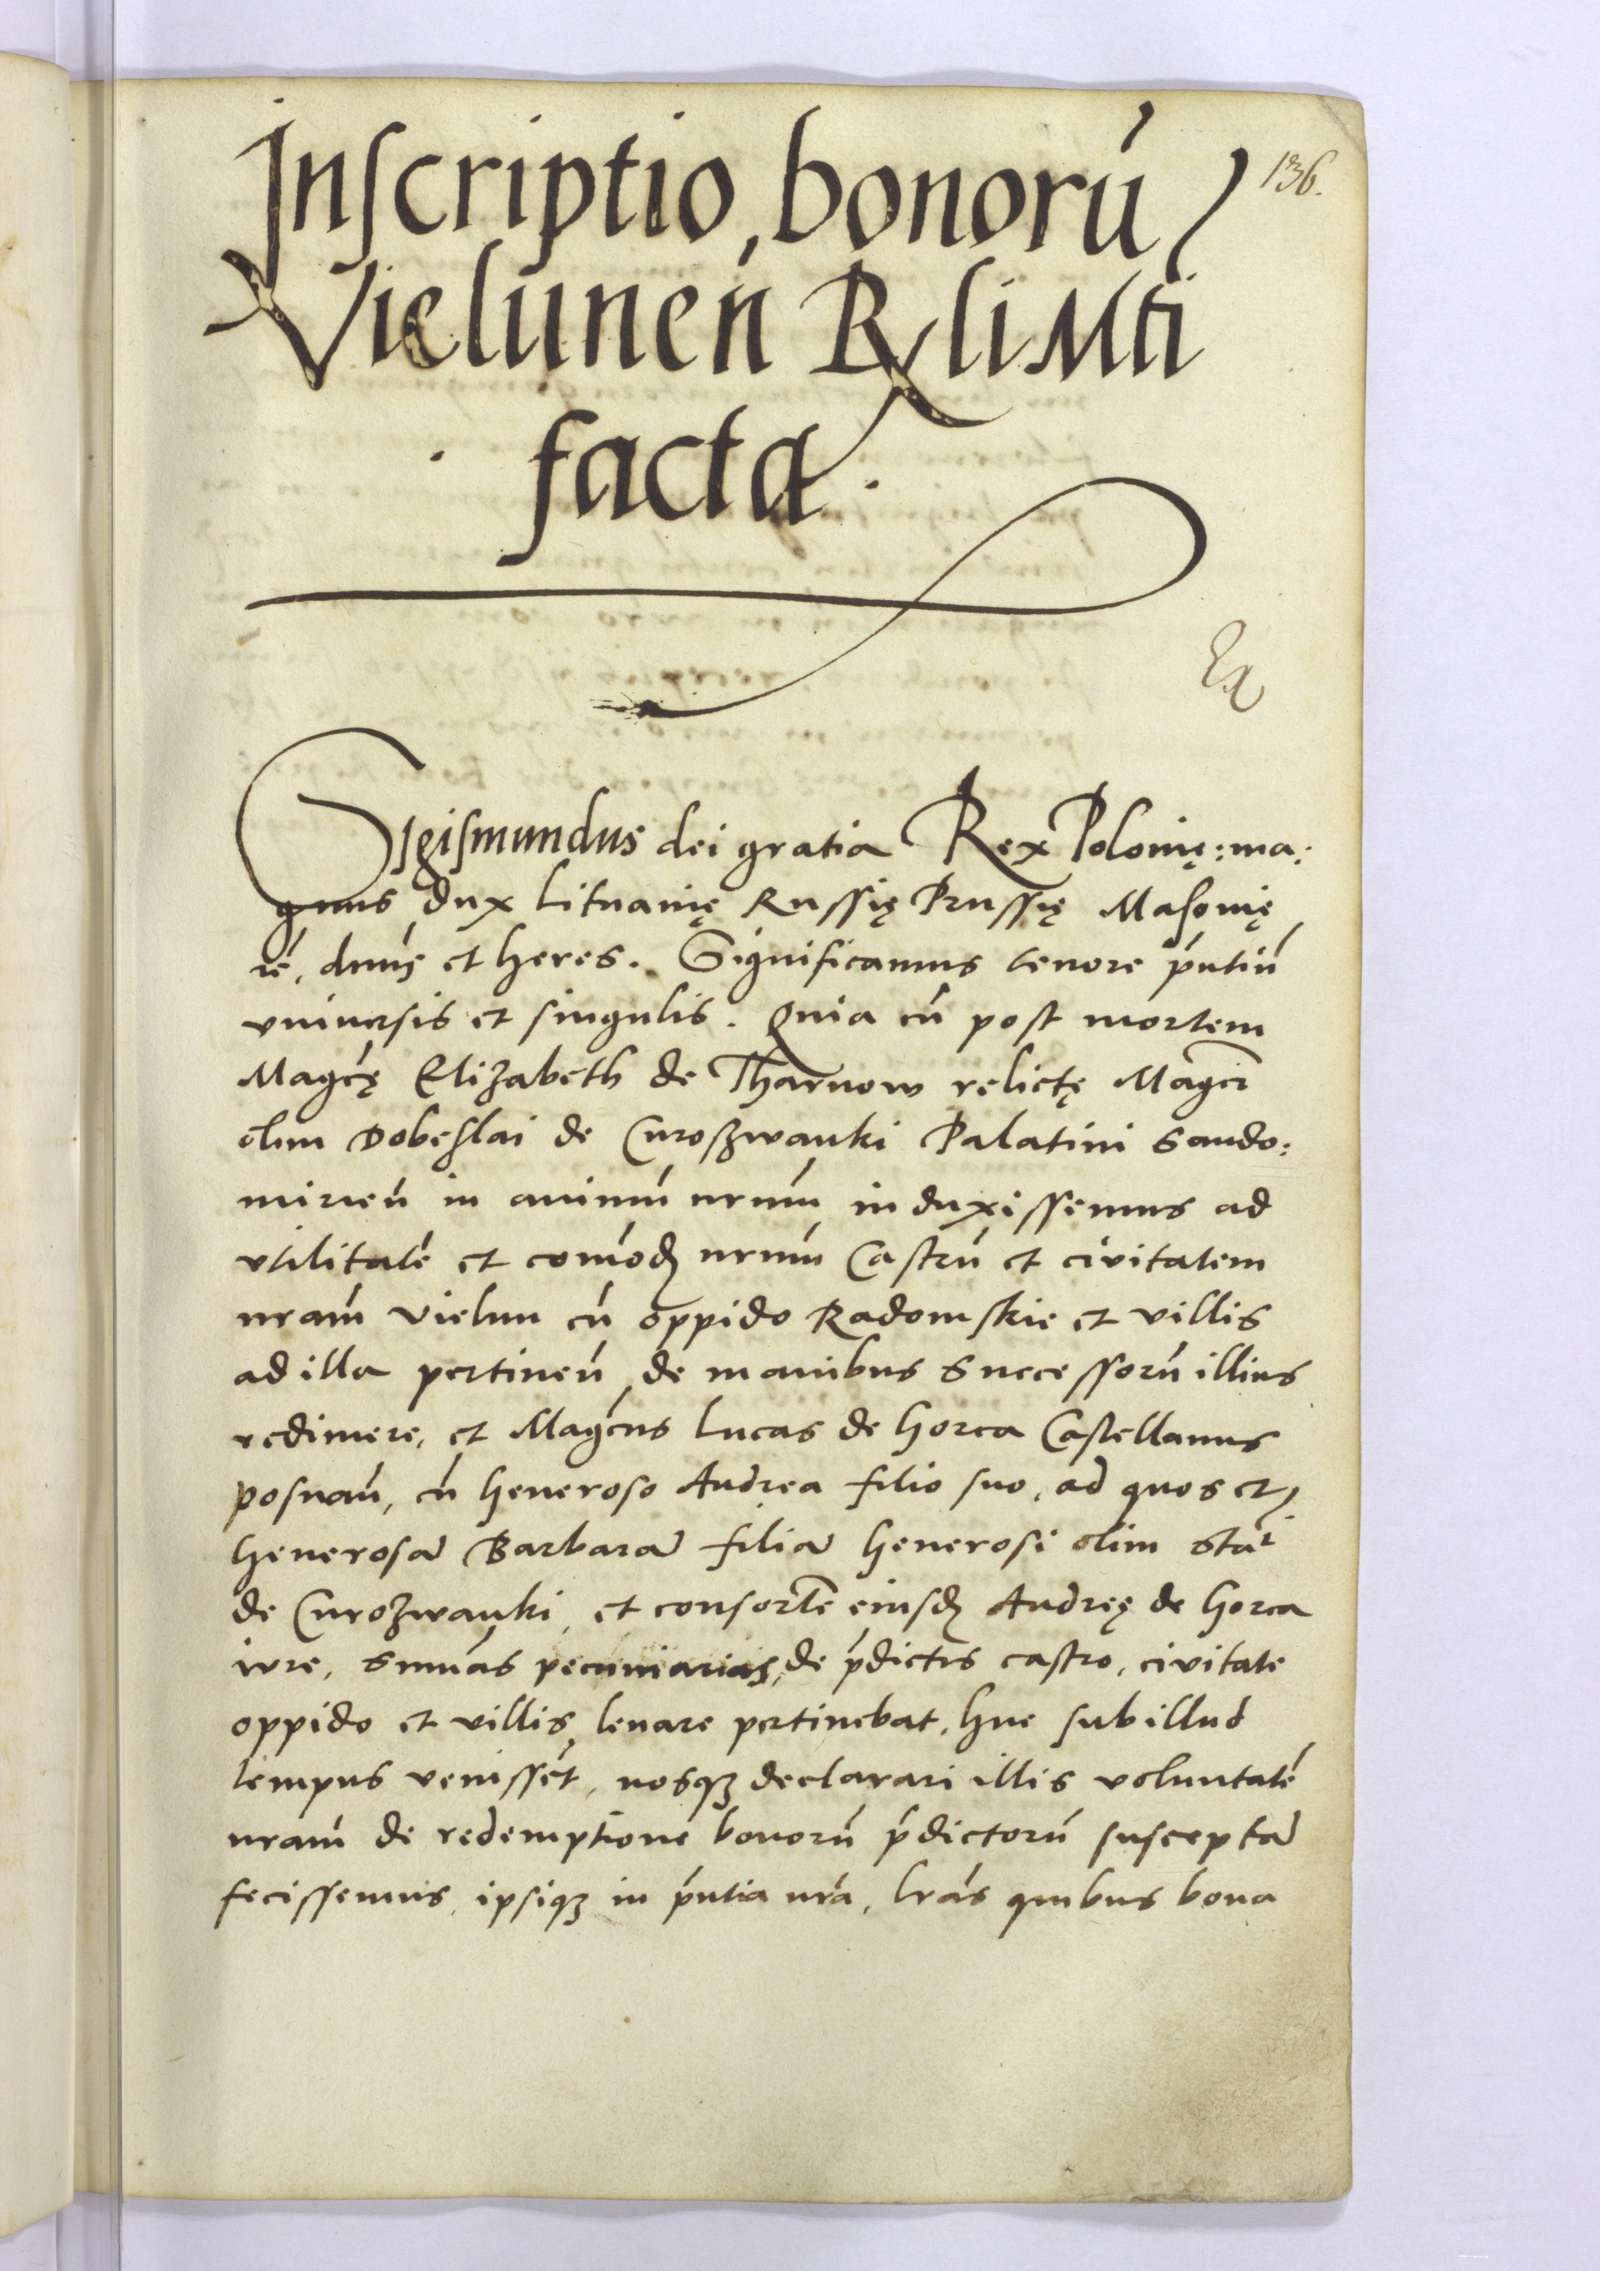 Inscriptio bonorū
136.
Vielunen̄ R̄li Mti
facta.
Ex
Sigismundus dei gratia Rex Polonię: ma:
gnus Dux Lituanię Russię Prussię Masonię
dn̄us et heres. Significamus tenore pn̄tiū
vniuersis et singulis. Quia cū post mortem
Magcę Elizabeth de Tharnow relictę Magci
olim Dobeslai de Curoszwanki Palatini Sando:
mirien̄ in animū nrūm induxissemus ad
vtilitatē et comod nrūm Castrū et civitatem
nram̄ Vielun cū oppido Radomskie et villis
ad illa pertinen̄ de manibus Successorū illius
redimere, et Magcus Lucas de Horca Castellanus
posnan̄, cū Heneroso Andrea filio suo, ad quos et
Henerosā Barbarā filiā Henerosi olim Stai
de Curozwanki, et consortē eiusd Andreę de Horca
iure, Sum̄as pecuniarias, de p̄dictis castro, civitate
oppido et villis, leuare pertinebat, huc sub illud
tempus venissēt, nosqz declarari illis voluntatē
nram̄ de redemptione bonorū p̄dictorū susceptā
fecissemus, ipsiqz in pn̄tia nrā, lrās quibus bona